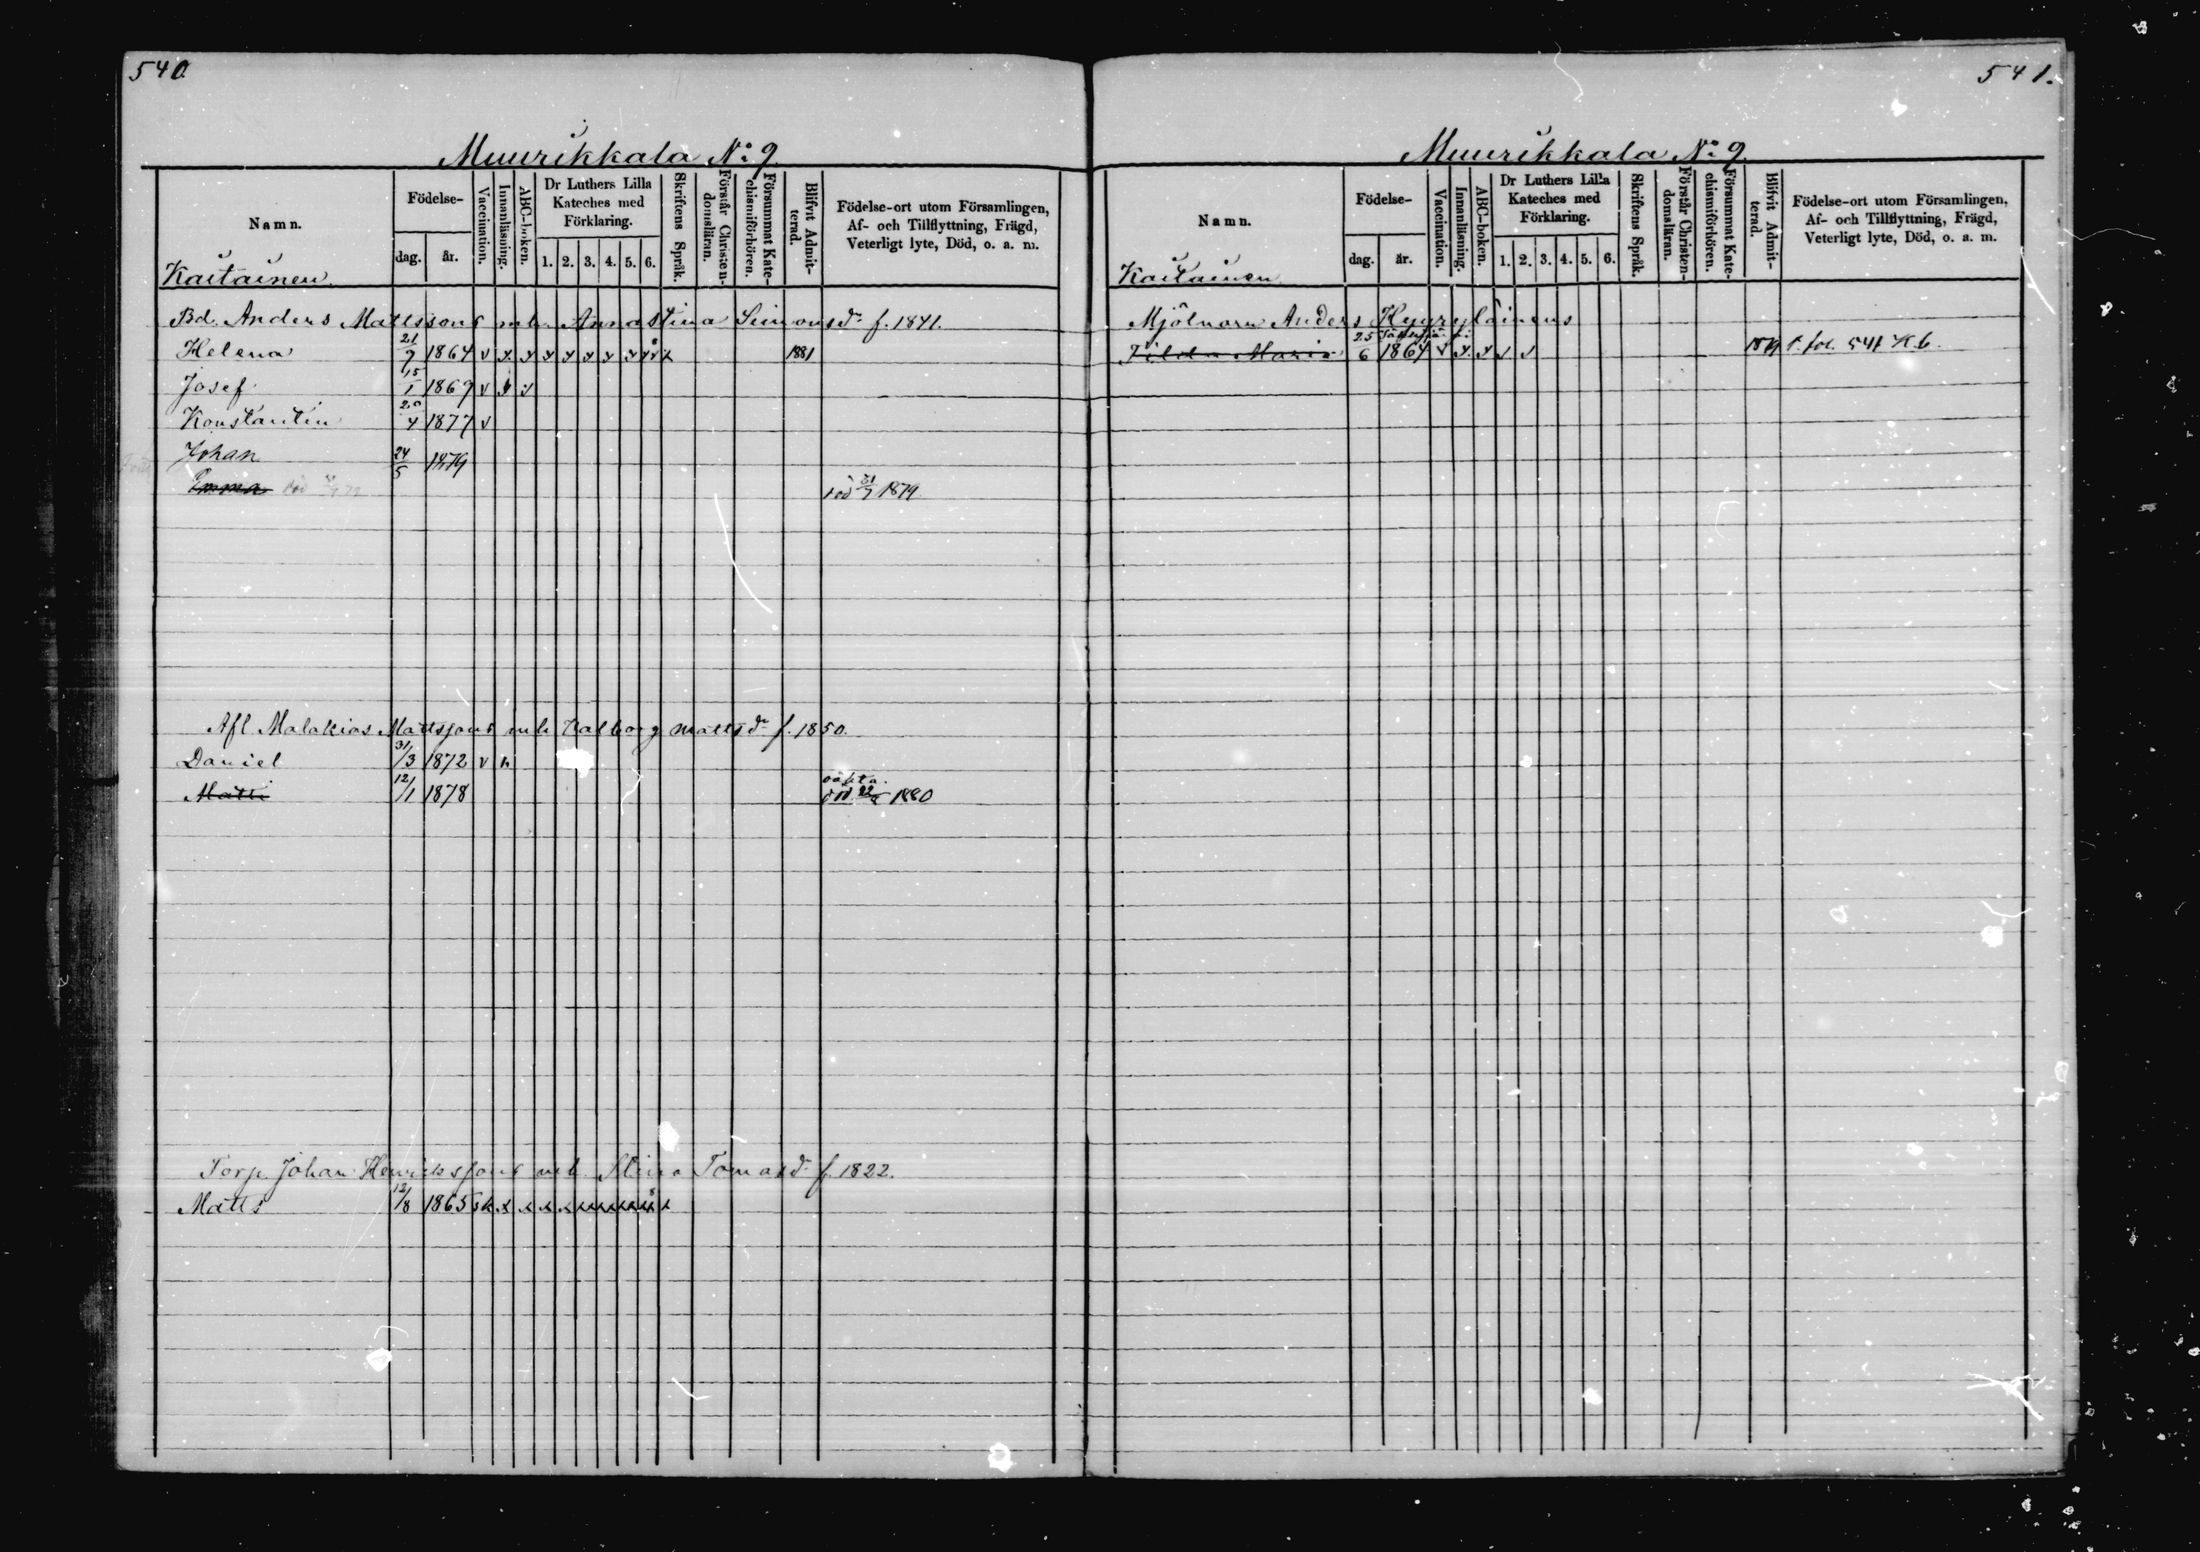 540.
Muurikkala No 9.
Namn. Födelse- dag. år. Vaccination. Innanläsning. ABC-boken. Dr Luthers Lilla Kateches med Förklaring. 1. 2. 3. 4. 5. 6. Skriftens Språk. Förstår Christendomsläran. Försummat Katechismiförhören. Blifvit Admitterad. Födelse-ort utom Församlingen, Af- och Tillflyttning, Frägd, Veterligt lyte, Död, o. a. m.
Kaitainen.
Bd. Anders Mattssons m h. Anna Stina Simonsdr f. 1841.
Helena 21/9 1864 v x x x x x x x x x x 1881
Josef 15/1 1869 v
Konstantin 20/4 1877 v
Johan 24/5 1879
Emma död 21/7 1879
Afl. Malakias Mattssons m h Valborg Mattsdr f. 1850.
Daniel 31/3 1872 v h
Matti 12/1 1878 död 22/ 1880
Torp. Johan Henrikssons m h. Stina Tomasdr f. 1822.
Matts 12/8 1865 sk x x x x
541.
Muurikkala No 9.
Namn. Födelse- dag. år. Vaccination. Innanläsning. ABC-boken. Dr Luthers Lilla Kateches med Förklaring. 1. 2. 3. 4. 5. 6. Skriftens Språk. Förstår Christendomsläran. Försummat Katechismiförhören. Blifvit Admitterad. Födelse-ort utom Församlingen, Af- och Tillflyttning, Frägd, Veterligt lyte, Död, o. a. m.
Kaitainen
Mjölnarn Anders Hyyryläinens
Tilda Maria 25/6 1864 v x x v v 1879 f. fol. 541 K b.